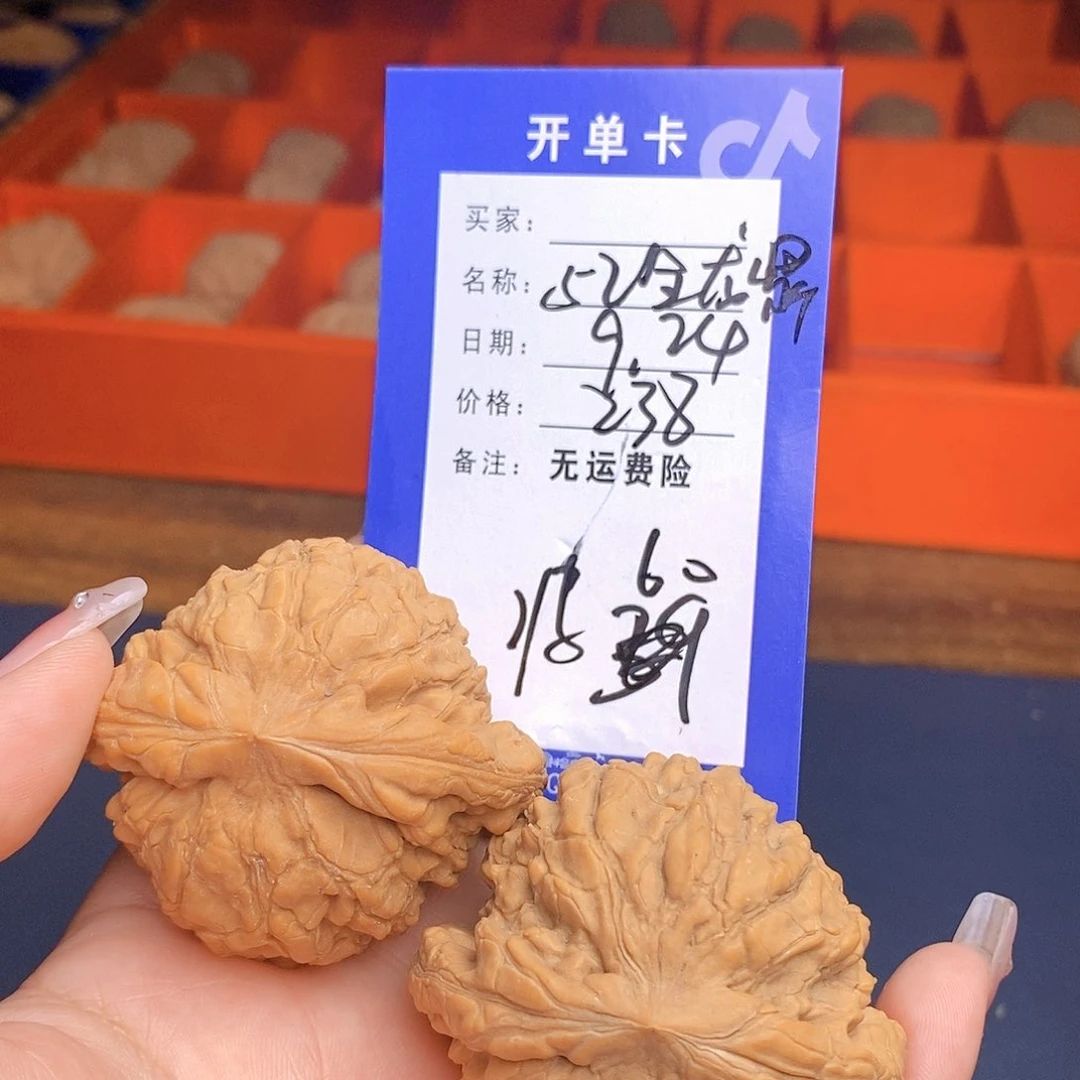 开单卡
买家：
名称：52全龙
日期：9.24
价格：238
备注：无运费险
60